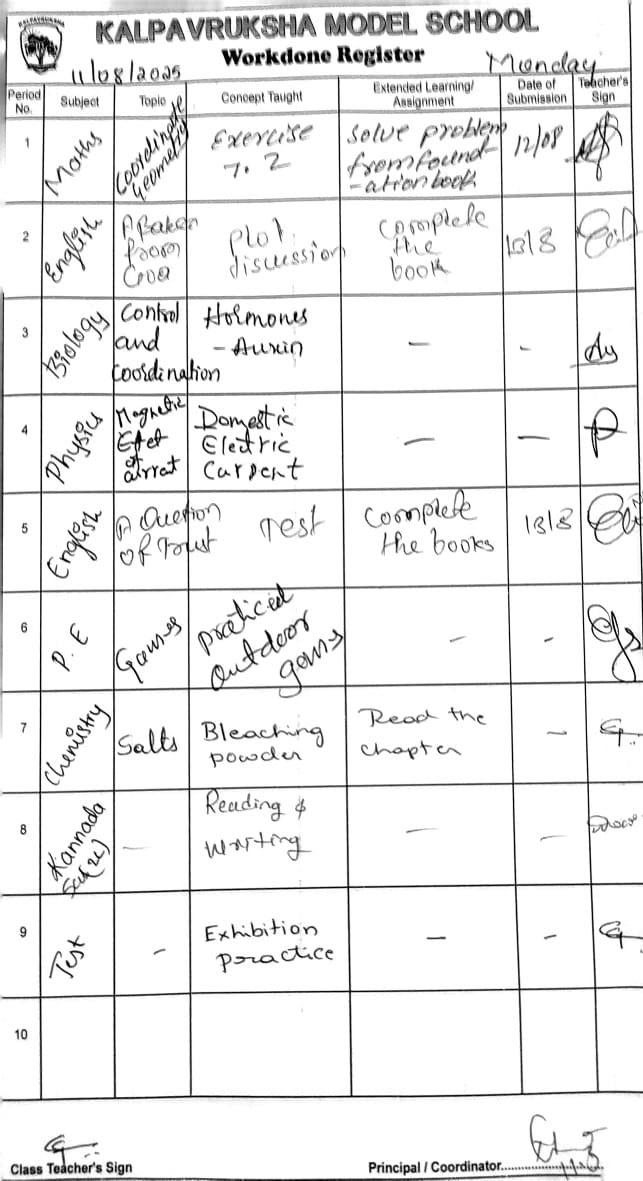 KALPAVRUKSHA
KALPAVRUKSHA MODEL SCHOOL
Workdone Register
11/08/2025 Monday
Period No. Subject Topic Concept Taught Extended Learning/ Assignment Date of Submission Teacher's Sign
1 Maths Coordinate Geometry Exercise 7.2 Solve problem from found-ation book 12/08
2 English A Baker from Goa Plot discussion Complete the book 13/8
3 Biology Control and Coordination Hormones - Auxin - -
4 Physics Magnetic Domestic Electric Current - -
5 English A Question Of Trust Test Complete the books 13/8
6 P.E Games Practiced outdoor gams - -
7 Chemistry Salts Bleaching powder Read the chapter -
8 Kannada - Reading & Writing - -
9 Test - Exhibition practice - -
10
Class Teacher's Sign Principal / Coordinator